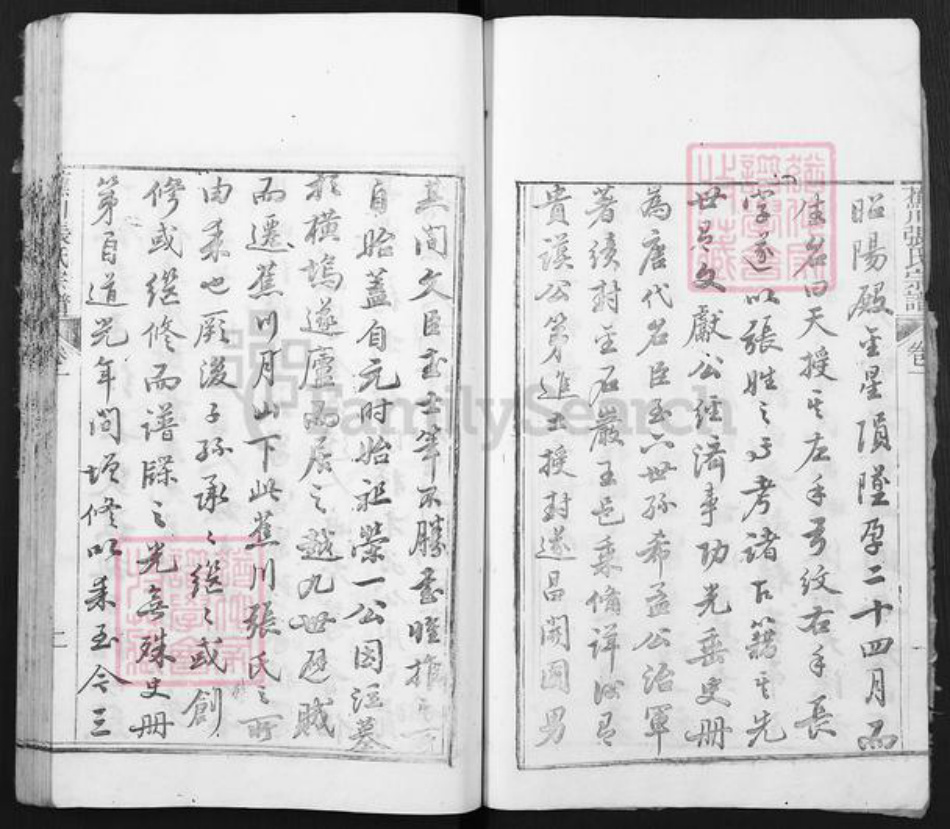 蕉川張氏宗譜 卷一 一
昭陽殿金星隕墜孕二十四月而
生名曰天授其左手弓紋右手長
字遂以張姓之之考諸古籍其先
世邑文獻公經濟事功光垂史冊
為唐代名臣至六世孫希孟公治軍
著績封至石巖王邑乘脩詳
貴謨公第進士授封遂昌開國男
其間文臣武士筆不勝書
自貽蓋自元時始祖榮一公因謳墓
於橫塢遂廬而居之越九世避賊
而遷蕉川月山下此蕉川張氏之所
由來也厥後子孫承之繼之或創
修或繼修而譜牒之光無殊史冊
第自道光年間增修以來至今三
蕉川張氏宗譜 卷一 二
FamilySearch